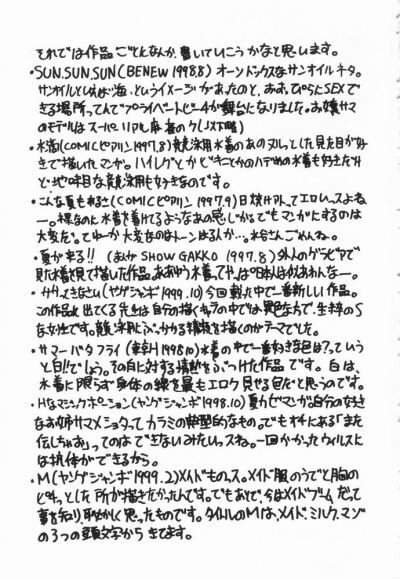 それでは作品ごとなんか、書いていこうかなと思います。
・SUN.SUN.SUN(BENEW 1998.8) オーソドックスなサンオイルネタ。
サンオイルといえば海、というイメージがあったのと、おおっぴらにSEXで
きる場所ってんでプライベートビーチが舞台になりました。お嬢サマ
のモデルはスーパーリアル麻雀の
・水滴(COMICピアリン 1997.8) 競泳用水着のあのヌルッとした見た目が好
きで描いたマンガ。ハイレグとかビキニとかのハデめの水着も好きだけ
ど地味目な競泳用も好きなのです。
・こんな夏もあるさ(COMICピアリン 1997.9) 日焼けアトってエロいっスよね
ー。裸なのに水着を着けてるようなあの感じが。でもマンガにするのは
大変だ。てゆーか大変なのはトーンはる人か…。水谷さんごめんね。
・夏が来る!! (まんが SHOW GAKKO 1997.8) 外人のグラビアで
見た水着を見て描いた作品。ああゆう水着ってやっぱ日本人は似合わんなー。
(ヤングジャンボ 1999.10) 今回載った中で一番新しい作品。
この作品に出てくる先生は自分の描くキャラの中では異色な方で、生粋のS
な女性です。競泳用にぶっかける精液を描くのがテーマでした。
・サマーバタフライ (1998.10) 水着の中で一番好きな色は?っていう
と白!!でしょう。その白に対する情熱をぶつけた作品です。白は、
水着に限らず身体の線を最もエロく見せる色だと思うのです。
・Hなマジックポーション(ヤングジャンボ 1998.10) 夏カゼマンガ。自分の好き
なお姉サマ×ショタってカラミの典型的なもの。でもオチにある「また
伝しちゃお」ってのはできないみたいっスね。一回かかったウィルスに
は抗体ができるから。
・M(ヤングジャンボ 1999.2) メイドものっス。メイド服のうでと胸の
ピチッとした所が描きたかったんです。でもあとで、今はメイドブームだって
事を知り、恥ずかしく思ったものです。タイトルのMは、メイド、ミルク、マゾ
の3つの頭文字からきてます。